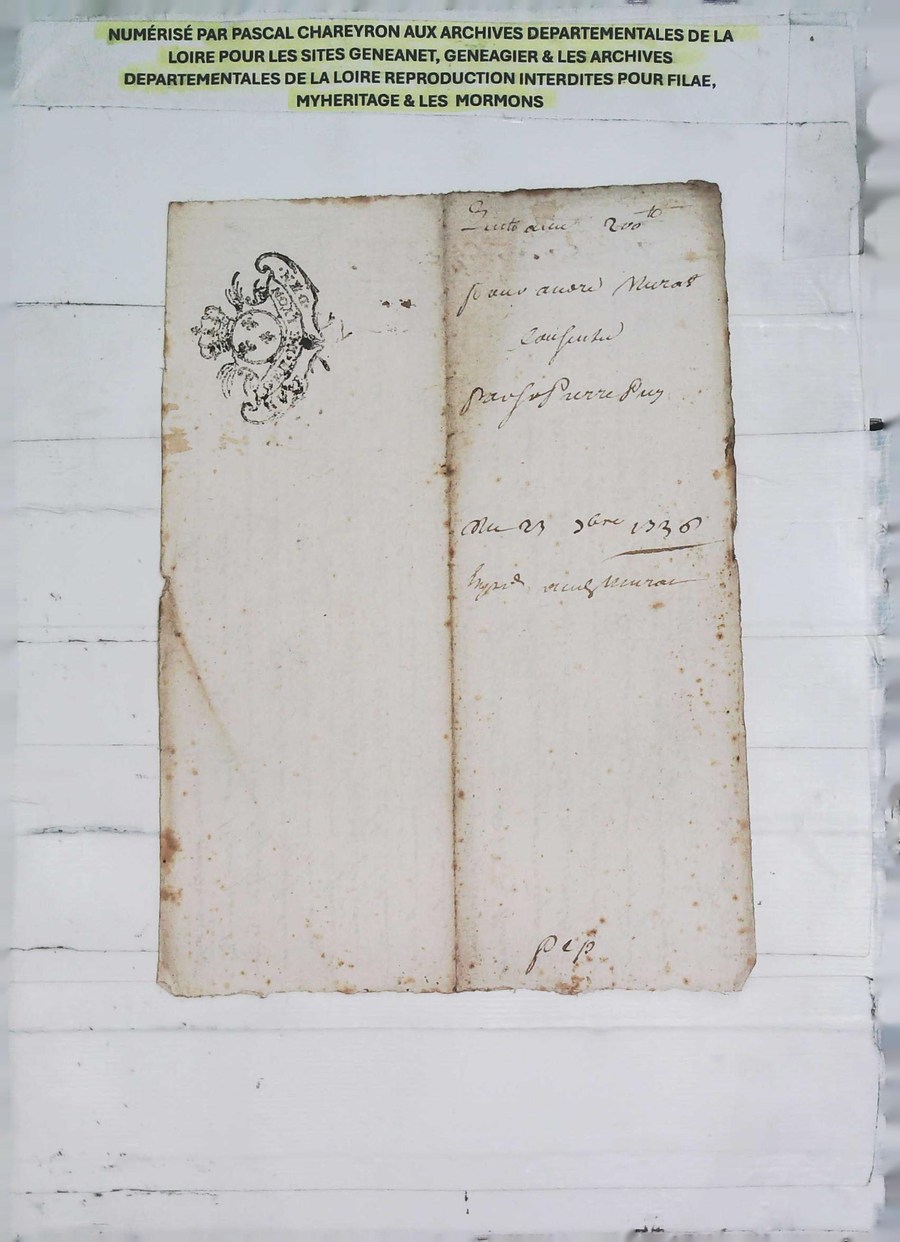 NUMÉRISÉ PAR PASCAL CHAREYRON AUX ARCHIVES DEPARTEMENTALES DE LA
LOIRE POUR LES SITES GENEANET, GENEAGIER & LES ARCHIVES
DEPARTEMENTALES DE LA LOIRE REPRODUCTION INTERDITES POUR FILAE,
MYHERITAGE & LES MORMONS
200tt
pour andré Murat
Consentie
par Sr Pierre Puy
Du 23 9bre 1736
Murat
pep